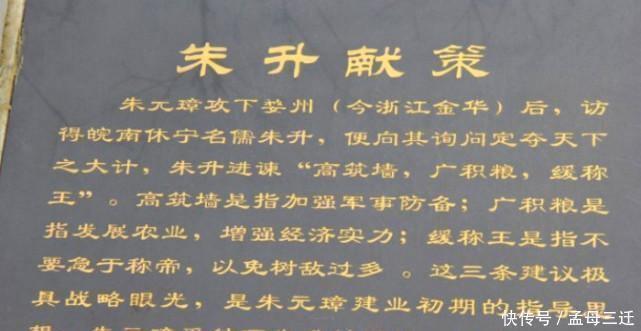 朱升献策
朱元璋攻下婺州（今浙江金华）后，访
得皖南休宁名儒朱升，便向其询问定夺天下
之大计，朱升进谏“高筑墙，广积粮，缓称
王”。高筑墙是指加强军事防备；广积粮是
指发展农业，增强经济实力；缓称王是指不
要急于称帝，以免树敌过多。这三条建议极
具战略眼光，是朱元璋建业初期的指导思
快传号／孟母三迁